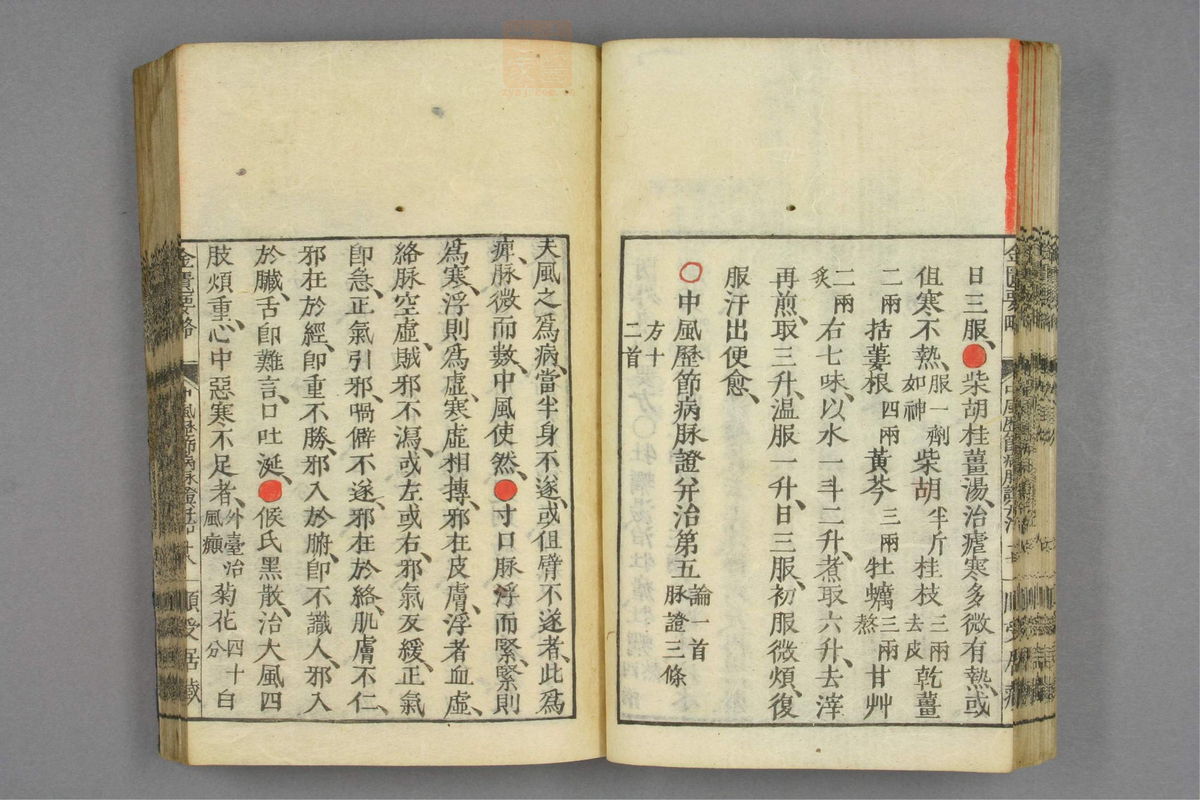 日三服、●柴胡桂薑湯、治瘧寒多微有熱或
但寒不熱、服一劑如神柴胡半斤桂枝三兩去皮乾薑
二兩括蔞根四兩黃芩三兩牡蠣三兩熬甘艸
二兩炙右七味、以水一斗二升、煮取六升、去滓
再煎、取三升、温服一升、日三服、初服微煩、復
服汗出便愈、
○中風歷節病脉證并治第五論一首脉證三條
方十二首
夫風之爲病、當半身不遂、或但臂不遂者、此爲
痺、脉微而數、中風使然、●寸口脉浮而緊、緊則
爲寒、浮則爲虛、寒虛相搏、邪在皮膚、浮者血虛、
絡脉空虛、賊邪不瀉、或左或右、邪氣反緩、正氣
卽急、正氣引邪、喎僻不遂、邪在於絡、肌膚不仁、
邪在於經、卽重不勝、邪入於腑、卽不識人、邪入
於臟、舌卽難言、口吐涎、●候氏黑散、治大風四
肢煩重、心中惡寒不足者、外臺治風癲菊花四十分去白
金匱要略
中風歷節病脉證并治
十八
順受居藏